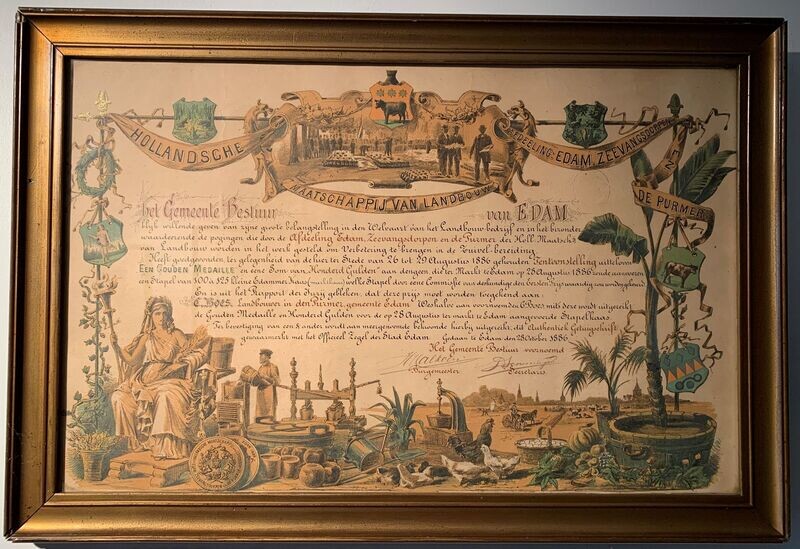 HOLLANDSCHE
MAATSCHAPPIJ VAN LANDBOUW
AFDEELING-EDAM, ZEEVANGSDORPEN
EN
DE PURMER
het Gemeente Bestuur van EDAM
blijk willende geven van zijne groote belangstelling in den Welvaart van het Landbouw-bedrijf en in het bizonder
waardeerende de pogingen die door de Afdeeling Edam, Zeevangsdorpen en de Purmer der Holl. Maatsch.ij
van Landbouw worden in het werk gesteld om Verbetering te brengen in de Zuivel-bereiding
Heeft goedgevonden ter gelegenheid van de hier ter Stede van 26 tot 29 Augustus 1886 gehouden Tentoonstelling uitteloven
EEN GOUDEN MEDAILLE en eene Som van Honderd Gulden aan dengeen, die ter Markt te Edam op 28 Augustus 1886 zoude aanvoeren
een Stapel van 300 à 325 kleine Edammer Kaas welke Stapel door eene Commissie van deskundigen den eersten Prijs waardig zou worden gekeurd
En is uit het Rapport der Jurij gebleken, dat deze prijs moet worden toegekend aan:
C. Boes, Landbouwer in den Purmer, Gemeente Edam
de Gouden Medaille en Honderd Gulden voor de op 28 Augustus ter markt te Edam aangevoerde Stapel kaas
Ter bevestiging van een & ander wordt aan meergenoemde behoorde hierbij uitgereikt dit authentiek Getuigschrift,
gewaarmerkt met het Officieel Zegel der Stad Edam. Gedaan te Edam den 28 October 1886
Het Gemeente Bestuur voornoemd
Burgemeester Secretaris